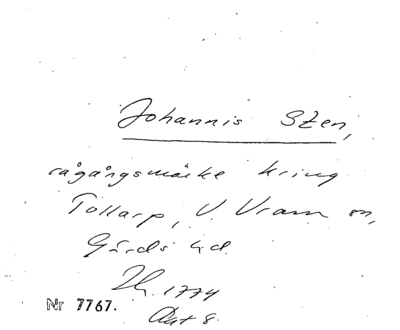 Johannis Sten,
rågångsmärke kring
Tollarp, V. Vram sn,
Gärds hd.
1774
Akt 8.
Nr 7767.